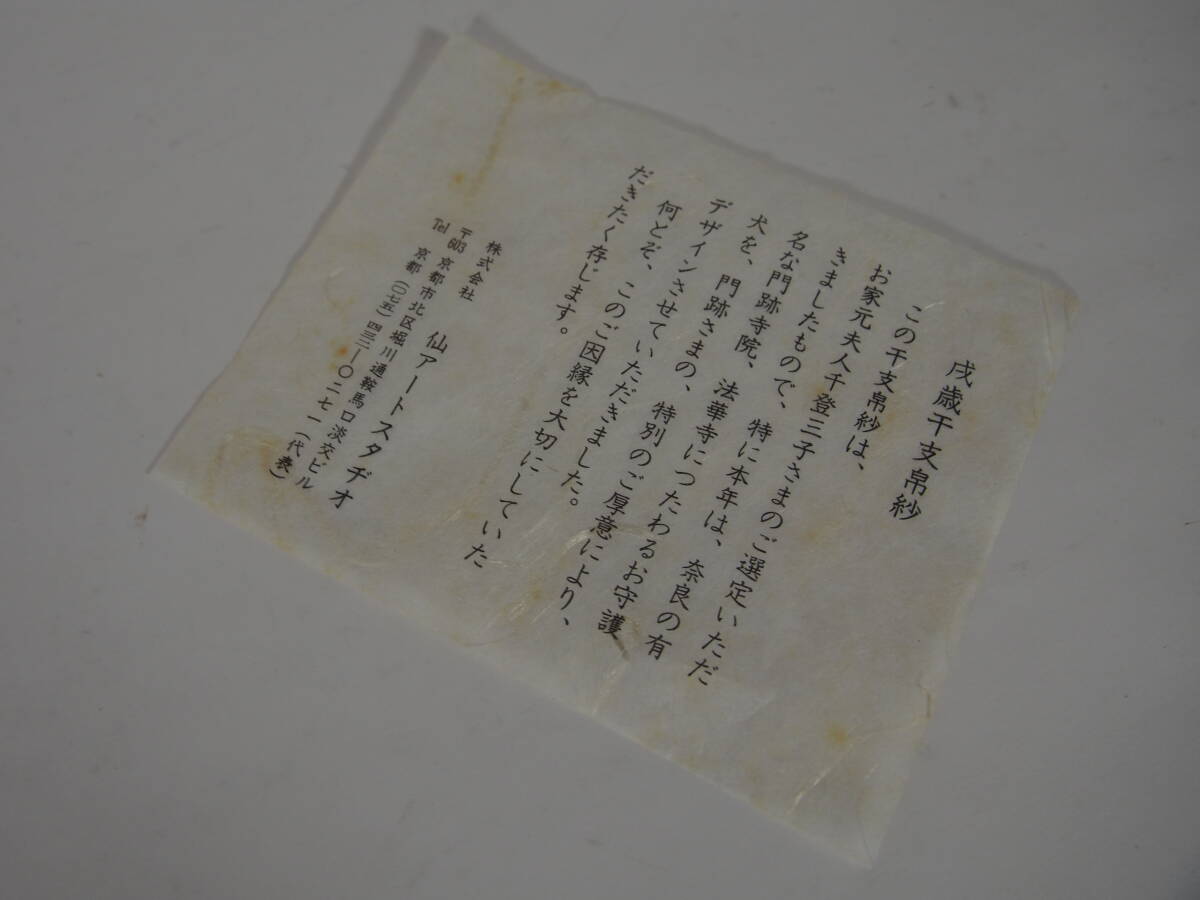 戌歳干支帛紗
この干支帛紗は、
お家元夫人千登三子さまのご選定いただ
きましたもので、特に本年は、奈良の有
名な門跡寺院、法華寺につたわるお守護
犬を、門跡さまの、特別のご厚意により、
デザインさせていただきました。
何とぞ、このご因縁を大切にしていた
だきたく存じます。
株式会社 仙アートスタヂオ
〒603 京都市北区堀川通鞍馬口淡交ビル
Tel 京都(〇七五)四三一―〇二七一(代表)